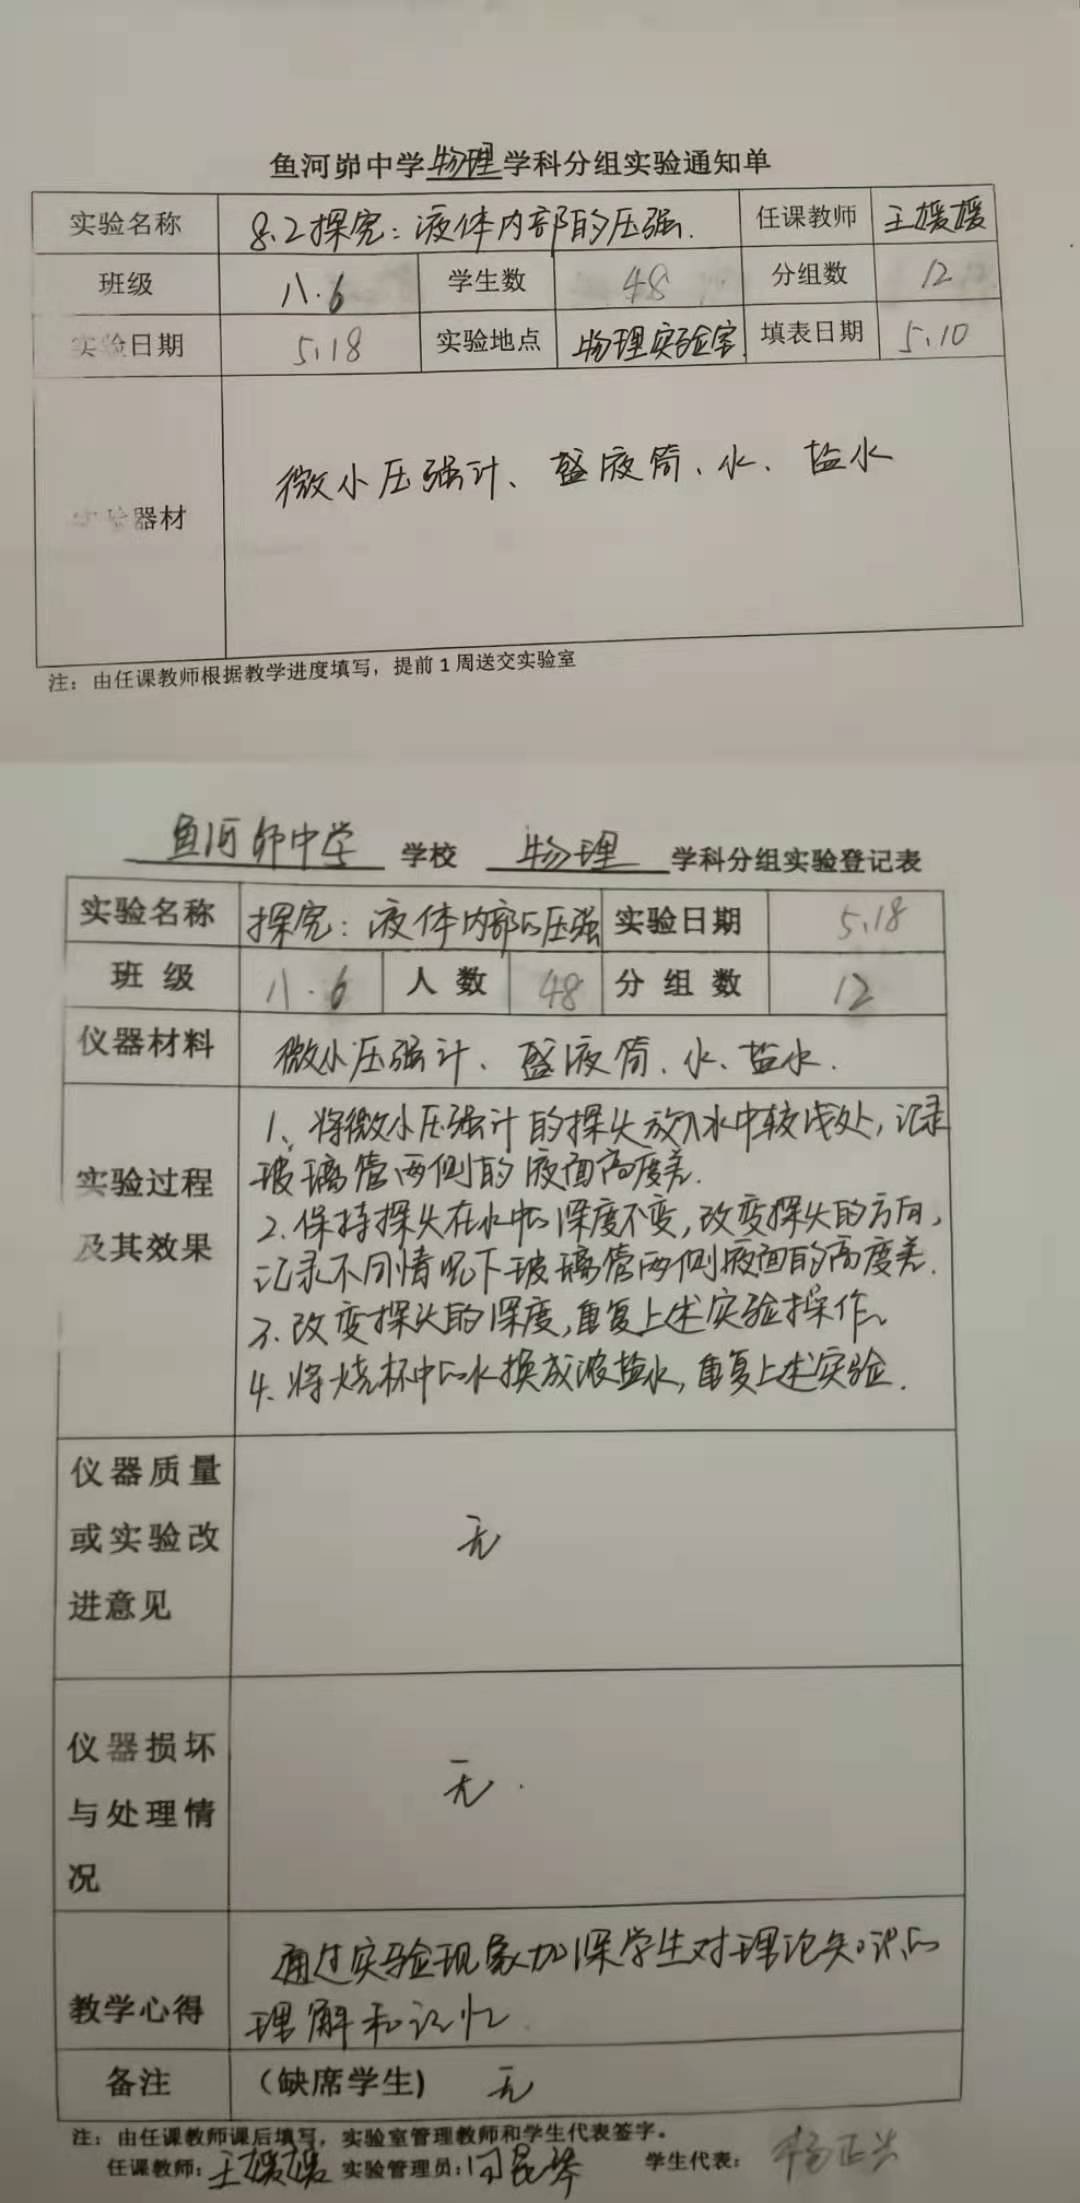 鱼河峁中学物理学科分组实验通知单
实验名称 8.2探究：液体内部的压强. 任课教师 王媛媛
班级 八.6 学生数 48 分组数 12
实验日期 5.18 实验地点 物理实验室 填表日期 5.10
器材 微小压强计、盛液筒、水、盐水
注：由任课教师根据教学进度填写，提前1周送交实验室
鱼河峁中学 学校 物理 学科分组实验登记表
实验名称 探究：液体内部的压强 实验日期 5.18
班级 八.6 人数 48 分组数 12
仪器材料 微小压强计、盛液筒、水、盐水.
实验过程及其效果
1、将微小压强计的探头放入水中较浅处，记录
玻璃管两侧的液面高度差.
2.保持探头在水中的深度不变，改变探头的方向，
记录不同情况下玻璃管两侧液面的高度差.
3.改变探头的深度，重复上述实验操作.
4.将烧杯中的水换成浓盐水，重复上述实验.
仪器质量
或实验改
进意见
无
仪器损坏
与处理情
况
无.
教学心得
通过实验现象加深学生对理论知识的
理解和记忆.
备注 （缺席学生） 无
注：由任课教师课后填写，实验室管理教师和学生代表签字。
任课教师：王媛媛 实验管理员： 学生代表：